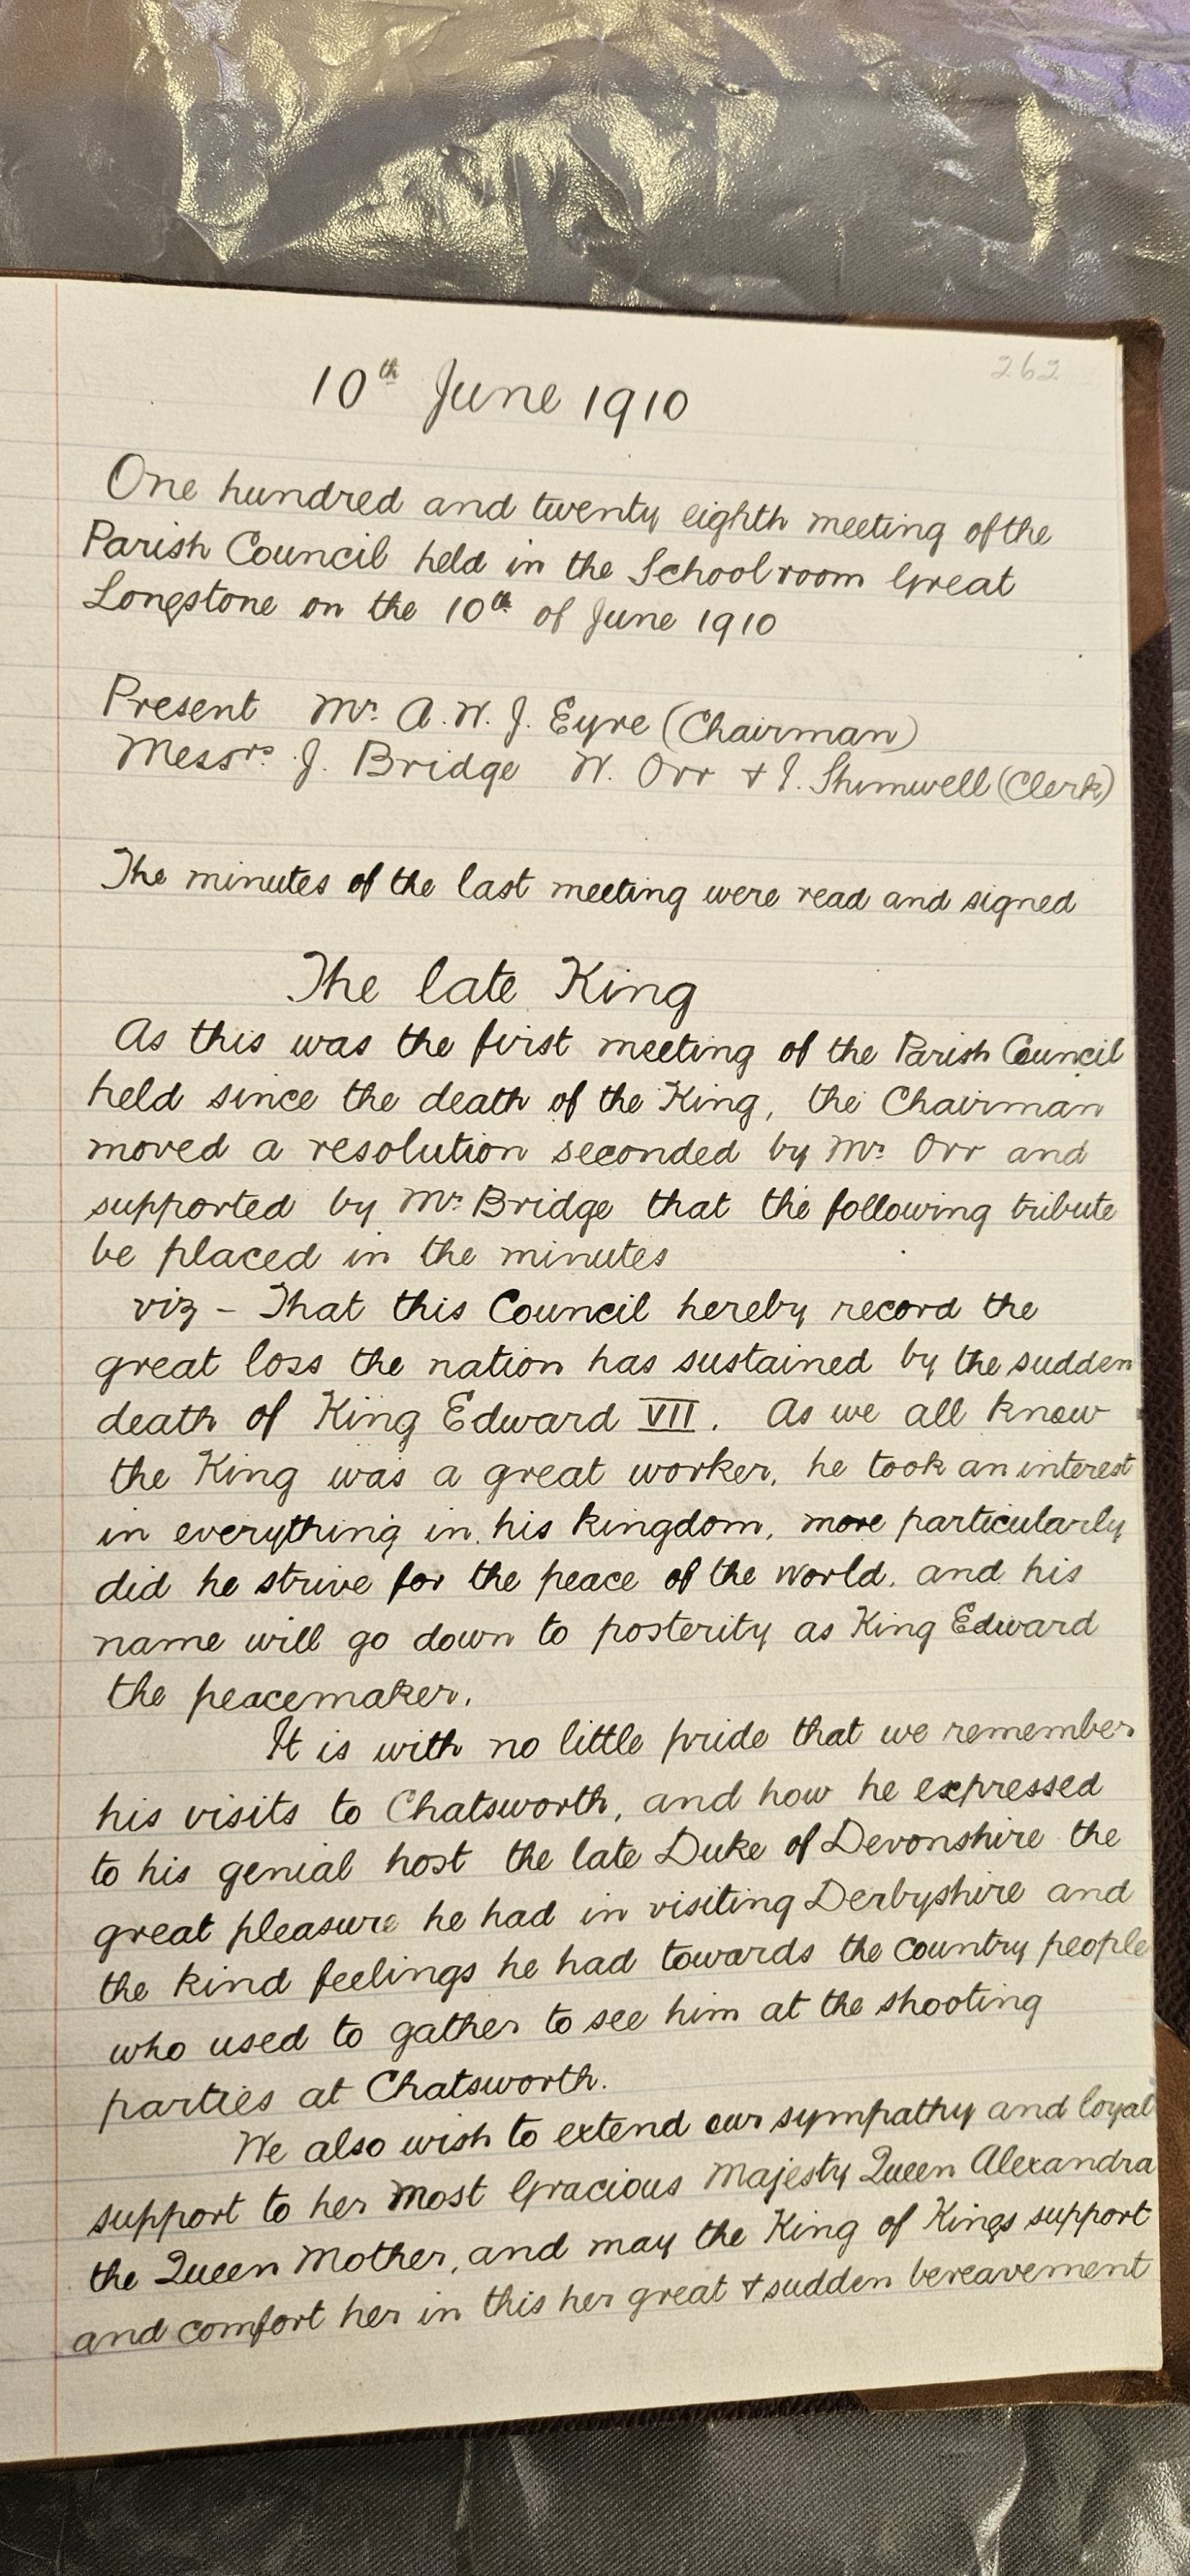 262
10th June 1910
One hundred and twenty eighth meeting of the
Parish Council held in the Schoolroom Great
Longstone on the 10th of June 1910
Present Mr. A. W. J. Eyre (Chairman)
Messrs. J. Bridge W. Orr & J. Shimwell (Clerk)
The minutes of the last meeting were read and signed
The late King
As this was the first meeting of the Parish Council
held since the death of the King, the Chairman
moved a resolution seconded by Mr. Orr and
supported by Mr. Bridge that the following tribute
be placed in the minutes
viz – That this Council hereby record the
great loss the nation has sustained by the sudden
death of King Edward VII. As we all know
the King was a great worker, he took an interest
in everything in his kingdom, more particularly
did he strive for the peace of the world, and his
name will go down to posterity as King Edward
the peacemaker.
It is with no little pride that we remember
his visits to Chatsworth, and how he expressed
to his genial host the late Duke of Devonshire the
great pleasure he had in visiting Derbyshire and
the kind feelings he had towards the country people
who used to gather to see him at the shooting
parties at Chatsworth.
We also wish to extend our sympathy and loyal
support to her most Gracious Majesty Queen Alexandra
the Queen Mother, and may the King of Kings support
and comfort her in this her great & sudden bereavement